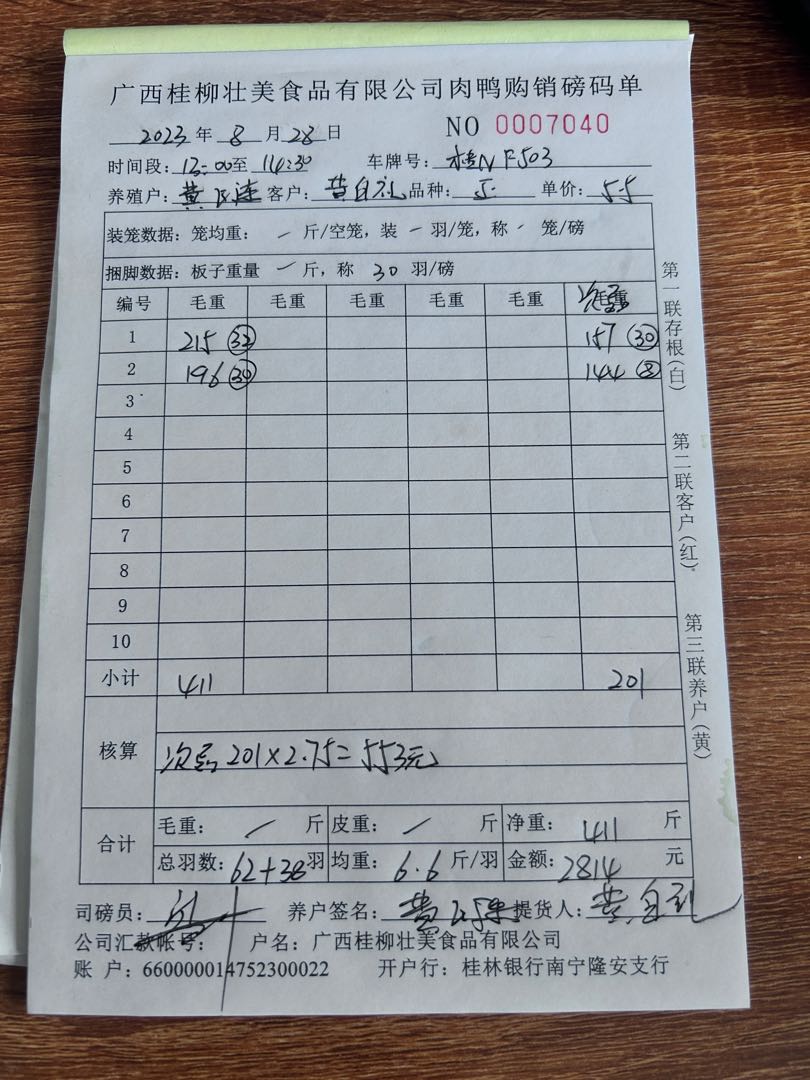 广西桂柳壮美食品有限公司肉鸭购销磅码单
2023 年 8 月 28 日 NO 0007040
时间段: 13:00 至 14:30 车牌号: 桂N F503
养殖户: 黄 客户: 黄自礼 品种: 单价: 5.5
装笼数据: 笼均重: / 斤/空笼, 装 / 羽/笼, 称 / 笼/磅
捆脚数据: 板子重量 / 斤, 称 30 羽/磅
编号 毛重 毛重 毛重 毛重 毛重 次品
1 215 (32) 157 (30)
2 196 (30) 144 (8)
3
4
5
6
7
8
9
10
小计 411 201
核算 次品 201×2.75=553元
合计 毛重: / 斤 皮重: / 斤 净重: 411 斤
总羽数: 62+38 羽 均重: 6.6 斤/羽 金额: 2814 元
司磅员: 养户签名: 黄 提货人: 黄自礼
公司汇款帐号: 户名: 广西桂柳壮美食品有限公司
账 户: 660000014752300022 开户行: 桂林银行南宁隆安支行
第一联存根(白) 第二联客户(红) 第三联养户(黄)